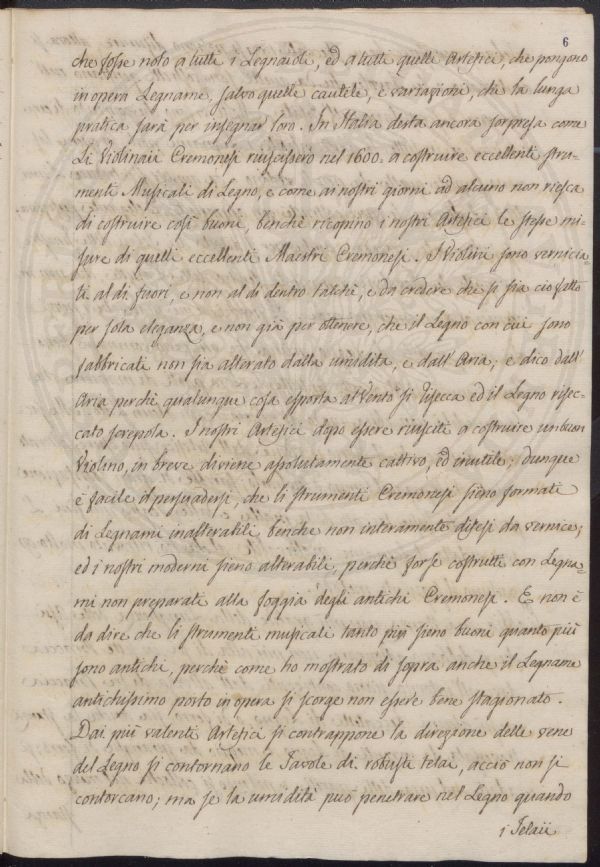 6
che fosse noto a tutti i Legnaioli, ed a tutti quelli Artefici, che pongono
in opera Legname, salvo quelle cautele, e variazioni, che la lunga
pratica sarà per insegnar loro. In Italia desta ancora sorpresa come
Li Violinaii Cremonesi riuscissero nel 1600. a costruire eccellenti stru-
menti Musicali di Legno, e come ai nostri giorni ad alcuno non riesca
di costruire così buoni, benchè ricopino i nostri Artefici le stesse mi-
sure di quelli eccellenti Maestri Cremonesi. I Violini sono vernicia-
ti al di fuori, e non al di dentro talchè, e da credere che si sia ciò fatto
per sola eleganza, e non già per ottenere, che il Legno con cui sono
fabbricati non sia alterato dalla umidità, e dall'Aria; e dico dall'
Aria perchè qualunque cosa esposta al Vento si risecca ed il Legno risec-
cato screpola. I nostri Artefici dopo essere riusciti a costruire un buon
Violino, in breve diviene assolutamente cattivo, ed inutile; dunque
è facile il persuadersi, che li strumenti Cremonesi sieno formati
di Legnami inalterabili benche non interamente difesi da vernice;
ed i nostri moderni sieno alterabili, perchè forse costrutti con Legna-
mi non preparati alla foggia degli antichi Cremonesi. E non è
da dire che li strumenti musicali tanto più sieno buoni quanto più
sono antichi, perchè come ho mostrato di sopra anche il Legname
antichissimo posto in opera si scorge non essere bene stagionato.
Dai più valenti Artefici si contrappone la direzione delle vene
del Legno si contornano le Tavole di robusti telai, acciò non si
contorcano; ma se la umidità può penetrare nel Legno quando
i Telaii